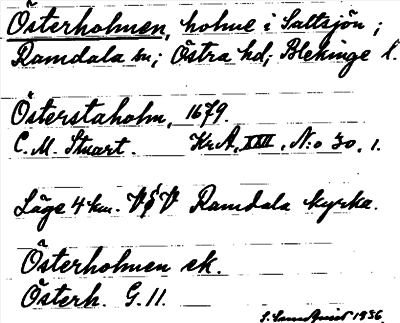 Österholmen, holme i Saltsjön;
Ramdala sn; Östra hd; Blekinge l.
Österstaholm, 1679.
C. M. Stuart. Kr A, XXII, N:o 30, 1.
Läge 4 km. VSV Ramdala kyrka.
Österholmen ek.
Österh. G. 11.
1936